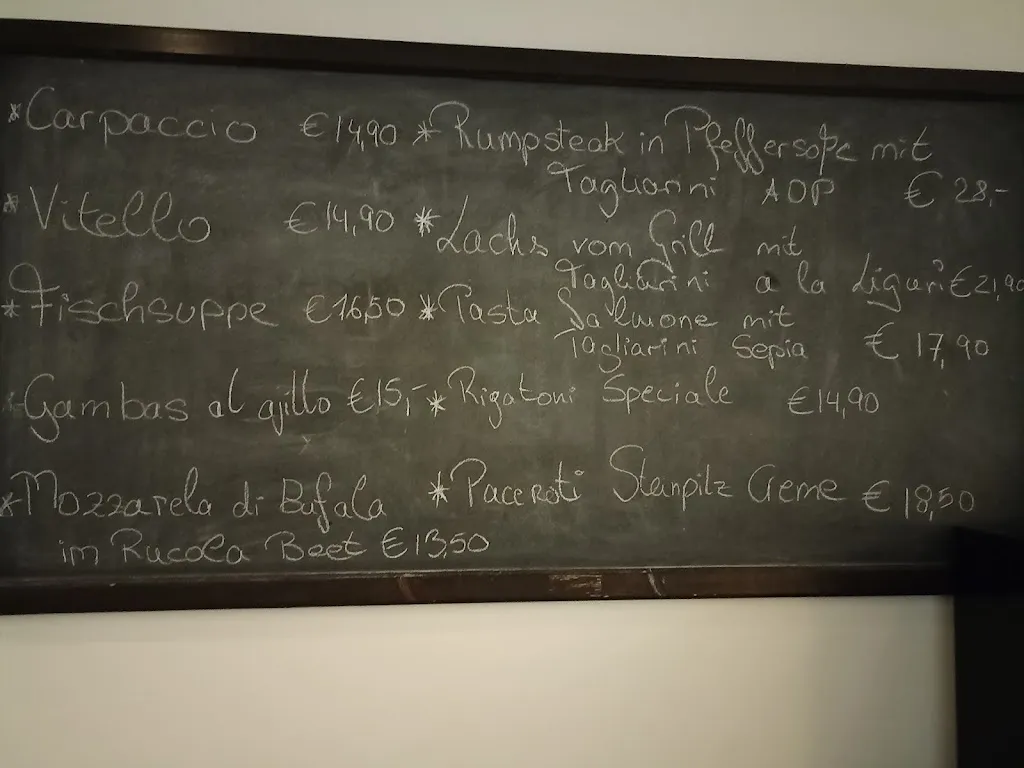 *Carpaccio €14,90
*Vitello €14,90
*Fischsuppe €16,50
*Gambas al gillo €15,-
*Mozzarela di Bufala
im Rucola Beet €13,50
*Rumpsteak in Pfeffersoße mit
Tagliarini AOP €28,-
*Lachs vom Grill mit
Tagliarini a la Liguri €21,90
*Pasta Salmone mit
Tagliarini Sepia €17,90
*Rigatoni Speciale €14,90
*Paccroti Stanpilz Creme €18,50